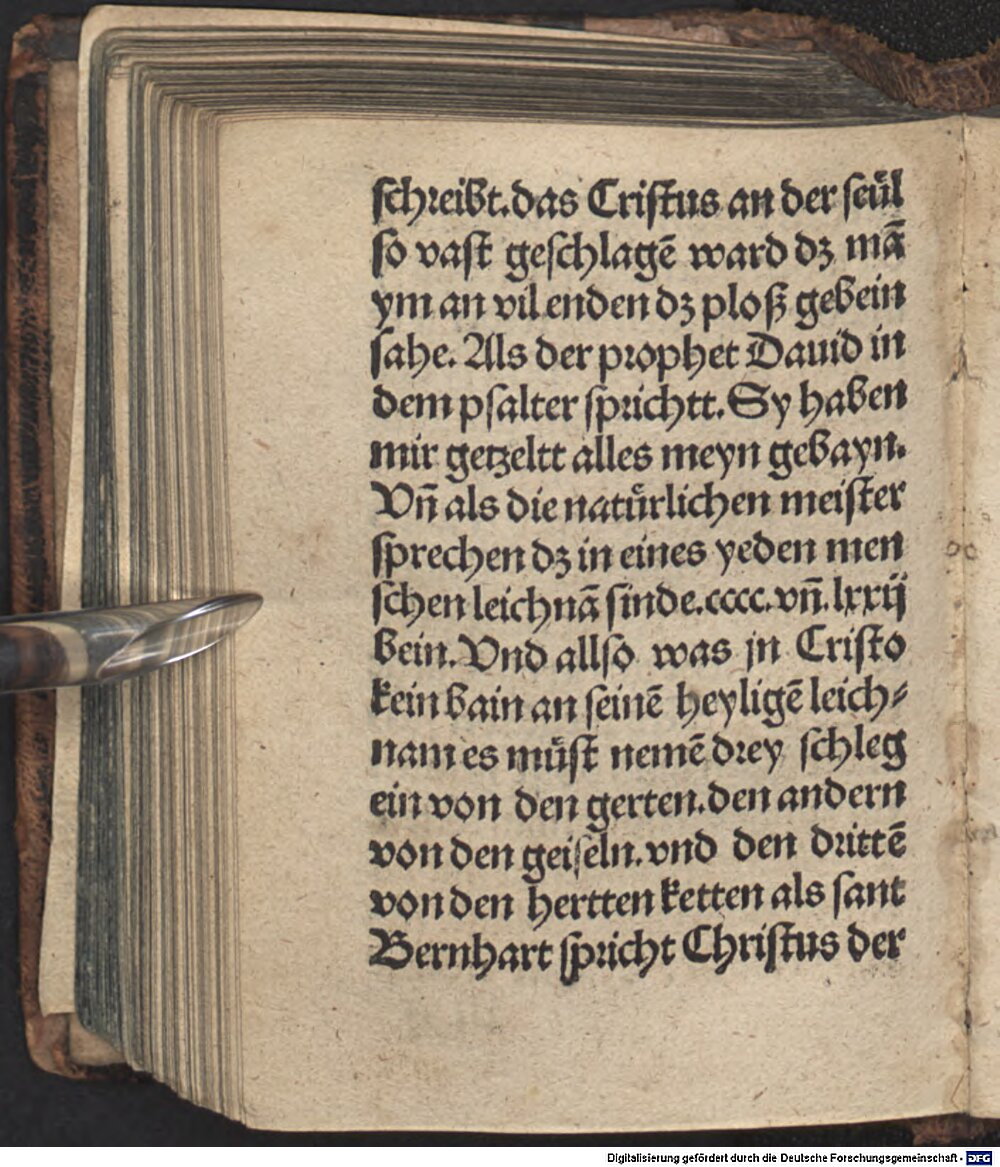 ſchreibt.das Criſtus an der ſeuͤl
ſo vaſt geſchlagē ward dꝫ mā
ym an vil enden dꝫ ploß gebein
ſahe. Als der prophet Dauid in
dem pſalter ſprichtt. Sy haben
mir getzeltt alles meyn gebayn.
Vñ als die natuͤrlichen meiſter
ſprechen dꝫ in eines yeden men
ſchen leichnā ſinde.cccc.vñ.lxxij
bein.Vnd allſo was jn Criſto
kein bain an ſeinē heyligē leich⸗
nam es muͤſt nemē drey ſchleg
ein von den gerten.den andern
von den geiſeln.vnd den drittē
von den hertten ketten als ſant
Bernhart ſpricht Chriſtus der
Digitalisierung gefördert durch die Deutsche Forschungsgemeinschaft - DFG